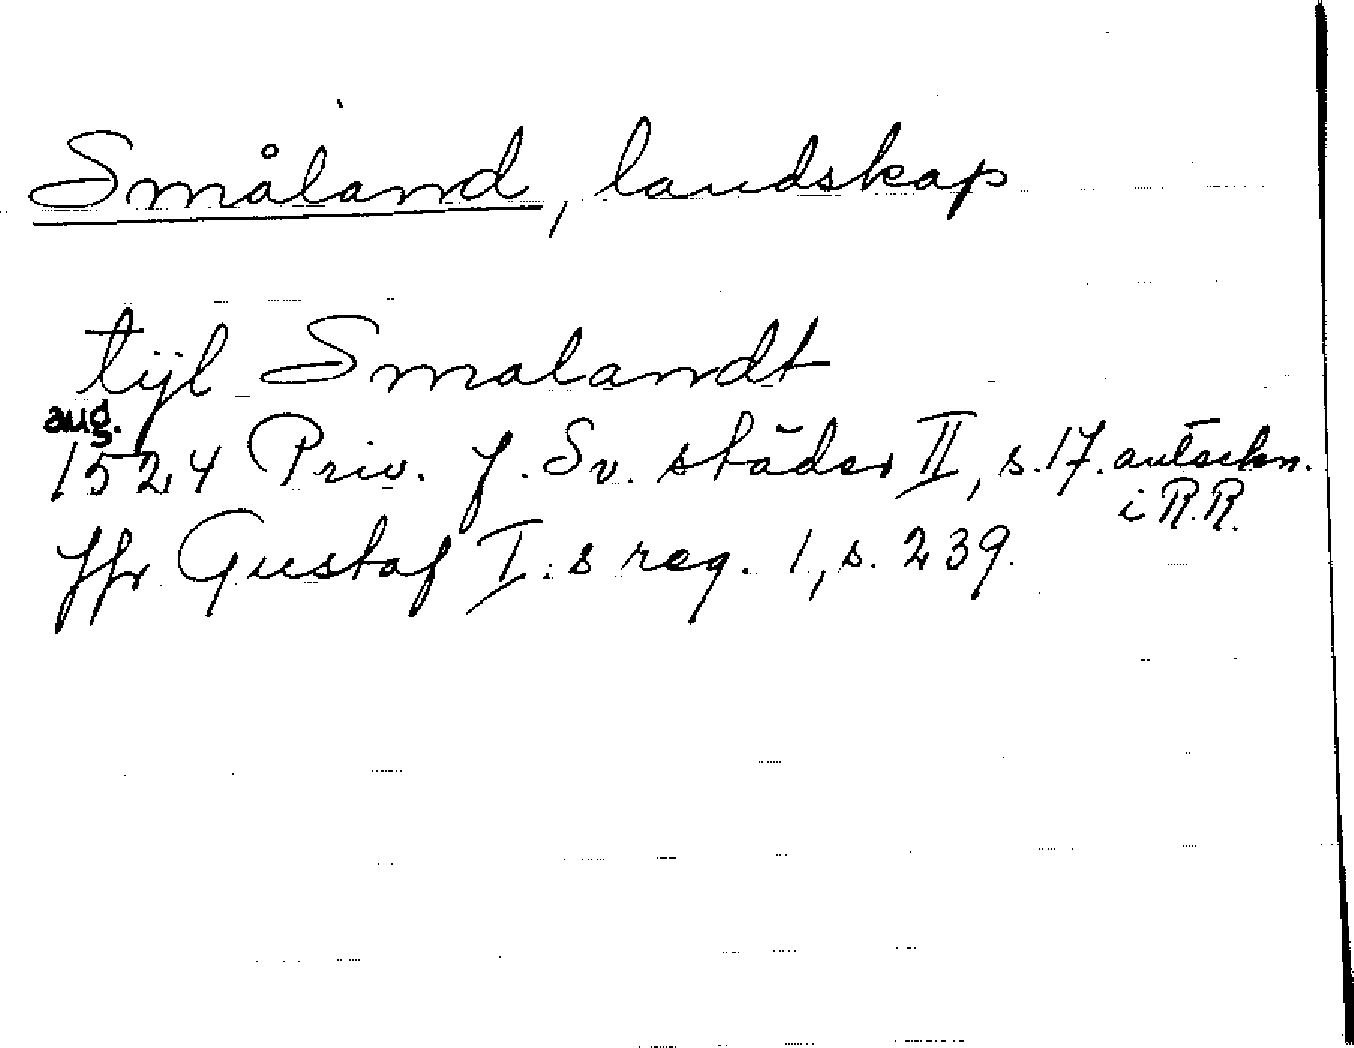 Småland, landskap
tÿl Smalandt
aug.
1524 Priv. f. Sv. städer II, s. 17. anteckn.
i R.R.
Jfr Gustaf I:s reg. 1, s. 239.